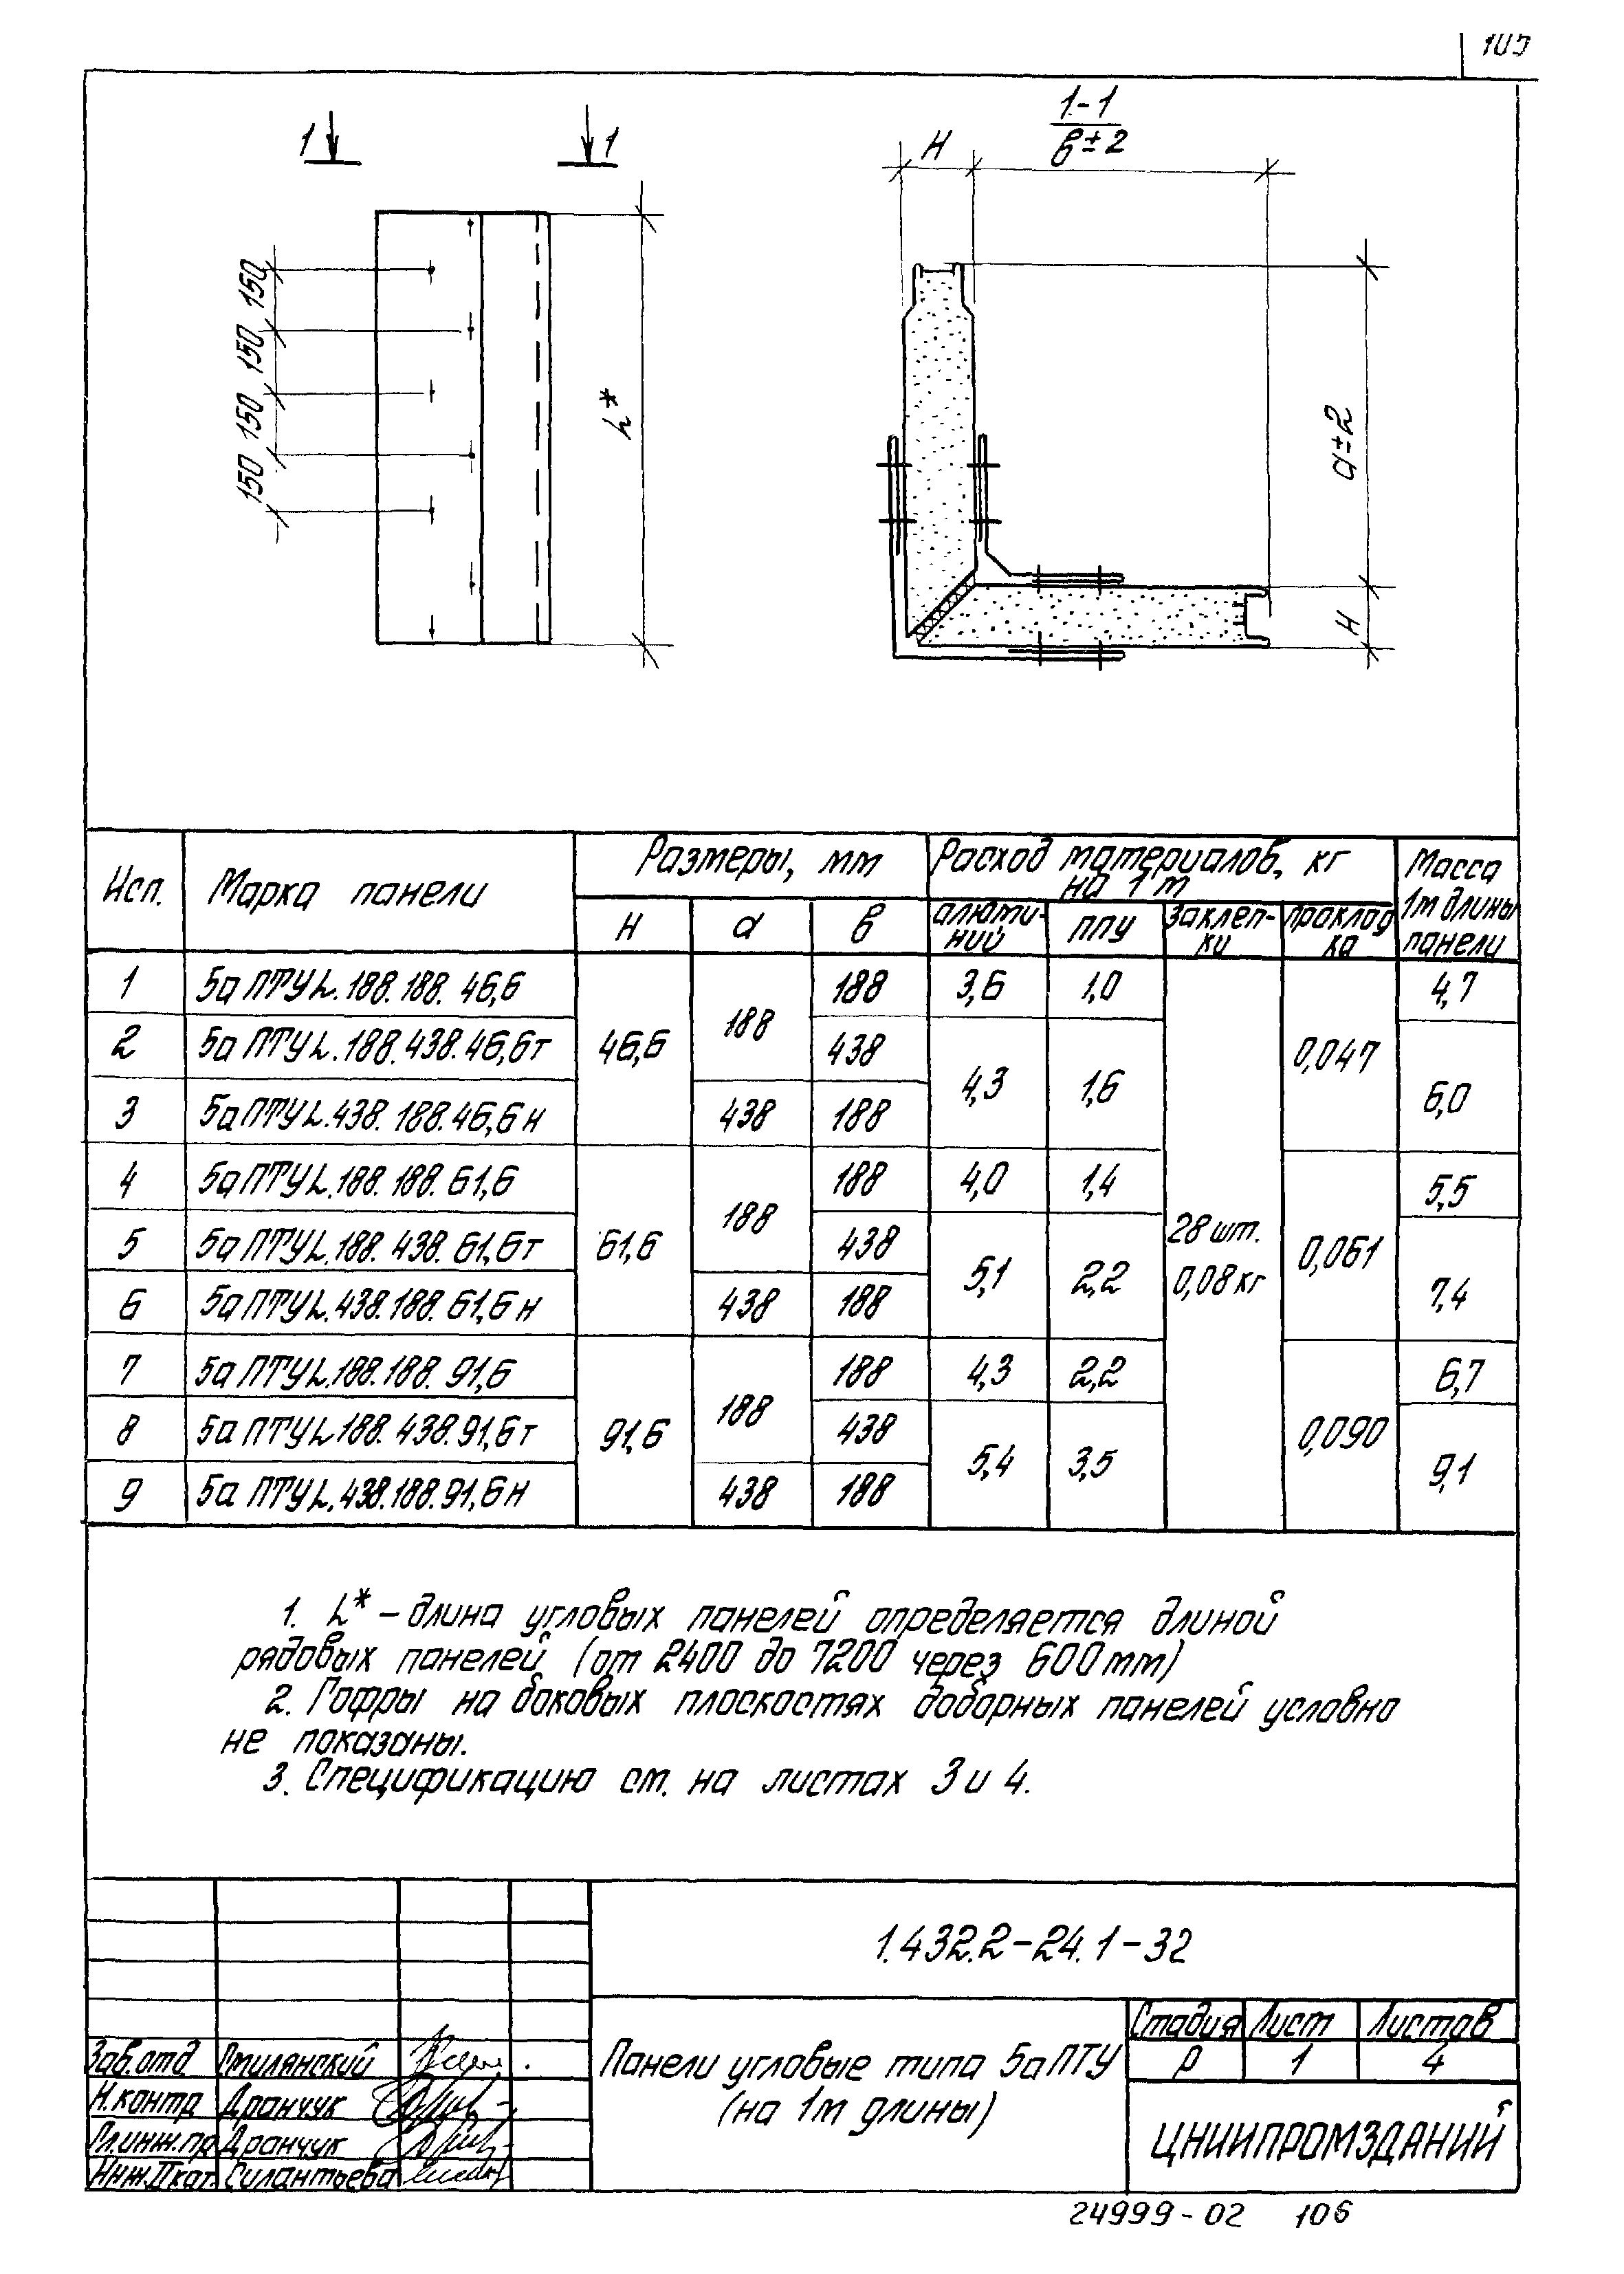 105
1 1
1-1
H в±2
150 150 150 150
L*
а±2
H
Исп. Марка панели Размеры, мм Расход материалов, кг на 1 м Масса 1м длины панели
H а в алюминий ППУ Заклепки прокладка
1 5аПТУL.188.188.46,6 46,6 188 188 3,6 1,0 28 шт. 0,08 кг 0,047 4,7
2 5аПТУL.188.438.46,6т 438 4,3 1,6 6,0
3 5аПТУL.438.188.46,6н 438 188
4 5аПТУL.188.188.61,6 61,6 188 188 4,0 1,4 0,061 5,5
5 5аПТУL.188.438.61,6т 438 5,1 2,2 7,4
6 5аПТУL.438.188.61,6н 438 188
7 5аПТУL.188.188.91,6 91,6 188 188 4,3 2,2 0,090 6,7
8 5аПТУL.188.438.91,6т 438 5,4 3,5 9,1
9 5аПТУL.438.188.91,6н 438 188
1. L* – длина угловых панелей определяется длиной
рядовых панелей (от 2400 до 7200 через 600мм)
2. Гофры на боковых плоскостях доборных панелей условно
не показаны.
3. Спецификацию см. на листах 3 и 4.
1.432.2-24.1-32
Панели угловые типа 5аПТУ
(на 1м длины)
Стадия Лист Листов
Р 1 4
ЦНИИПРОМЗДАНИЙ
Зав.отд Смилянский
Н.контр Дранчук
Гл.инж.пр Дранчук
Инж.IIкат. Силантьева
24999-02 106